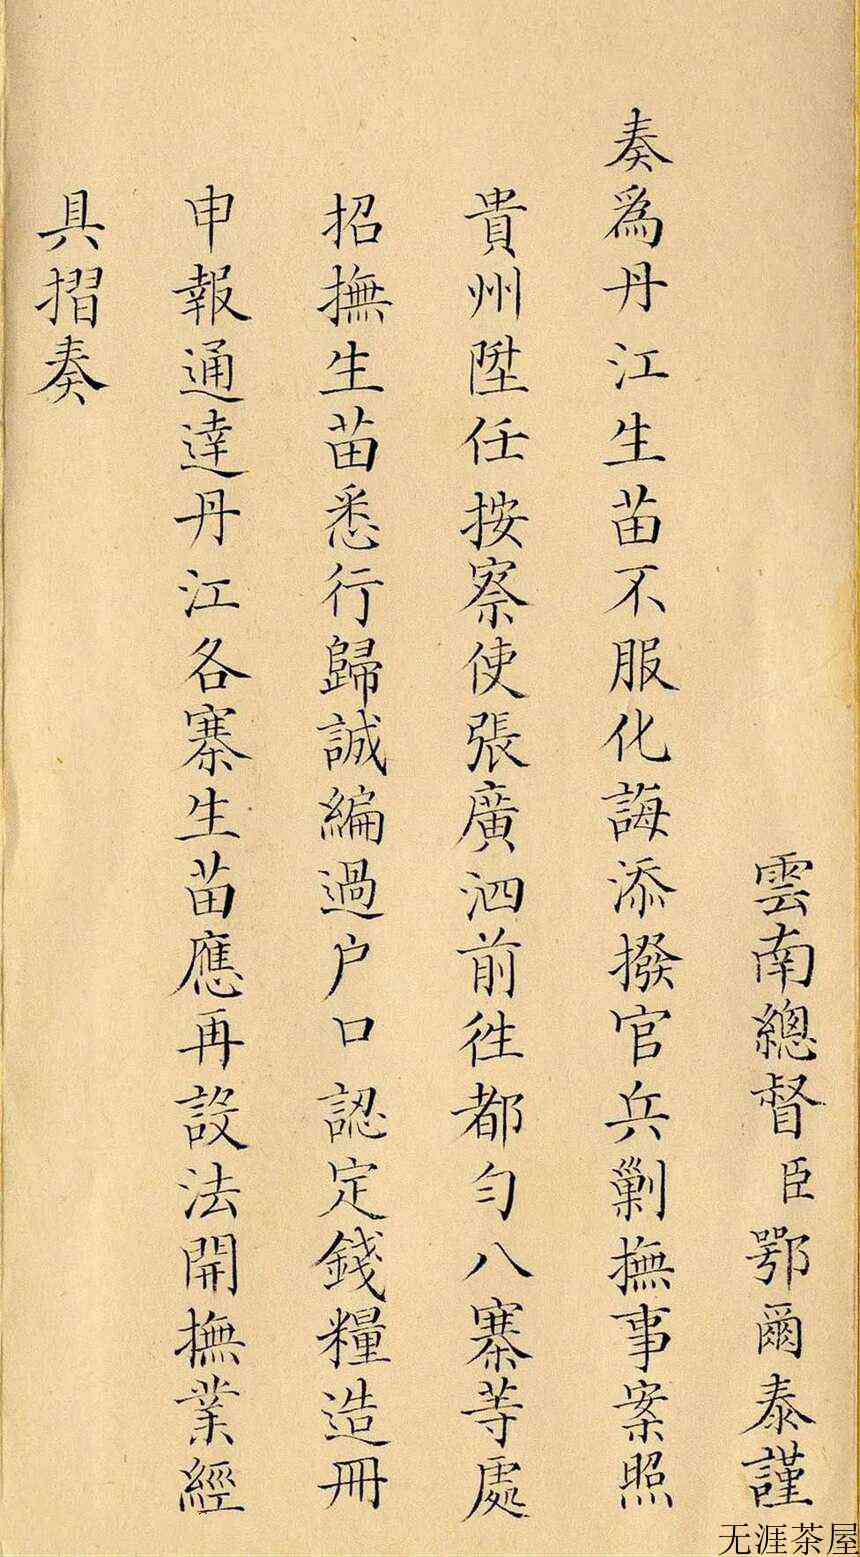 雲南總督臣鄂爾泰謹
奏爲丹江生苗不服化誨添撥官兵剿撫事案照
貴州陞任按察使張廣泗前徃都勻八寨等處
招撫生苗悉行歸誠編過户口認定錢糧造冊
申報通達丹江各寨生苗應再設法開撫業經
具摺奏
无涯茶屋